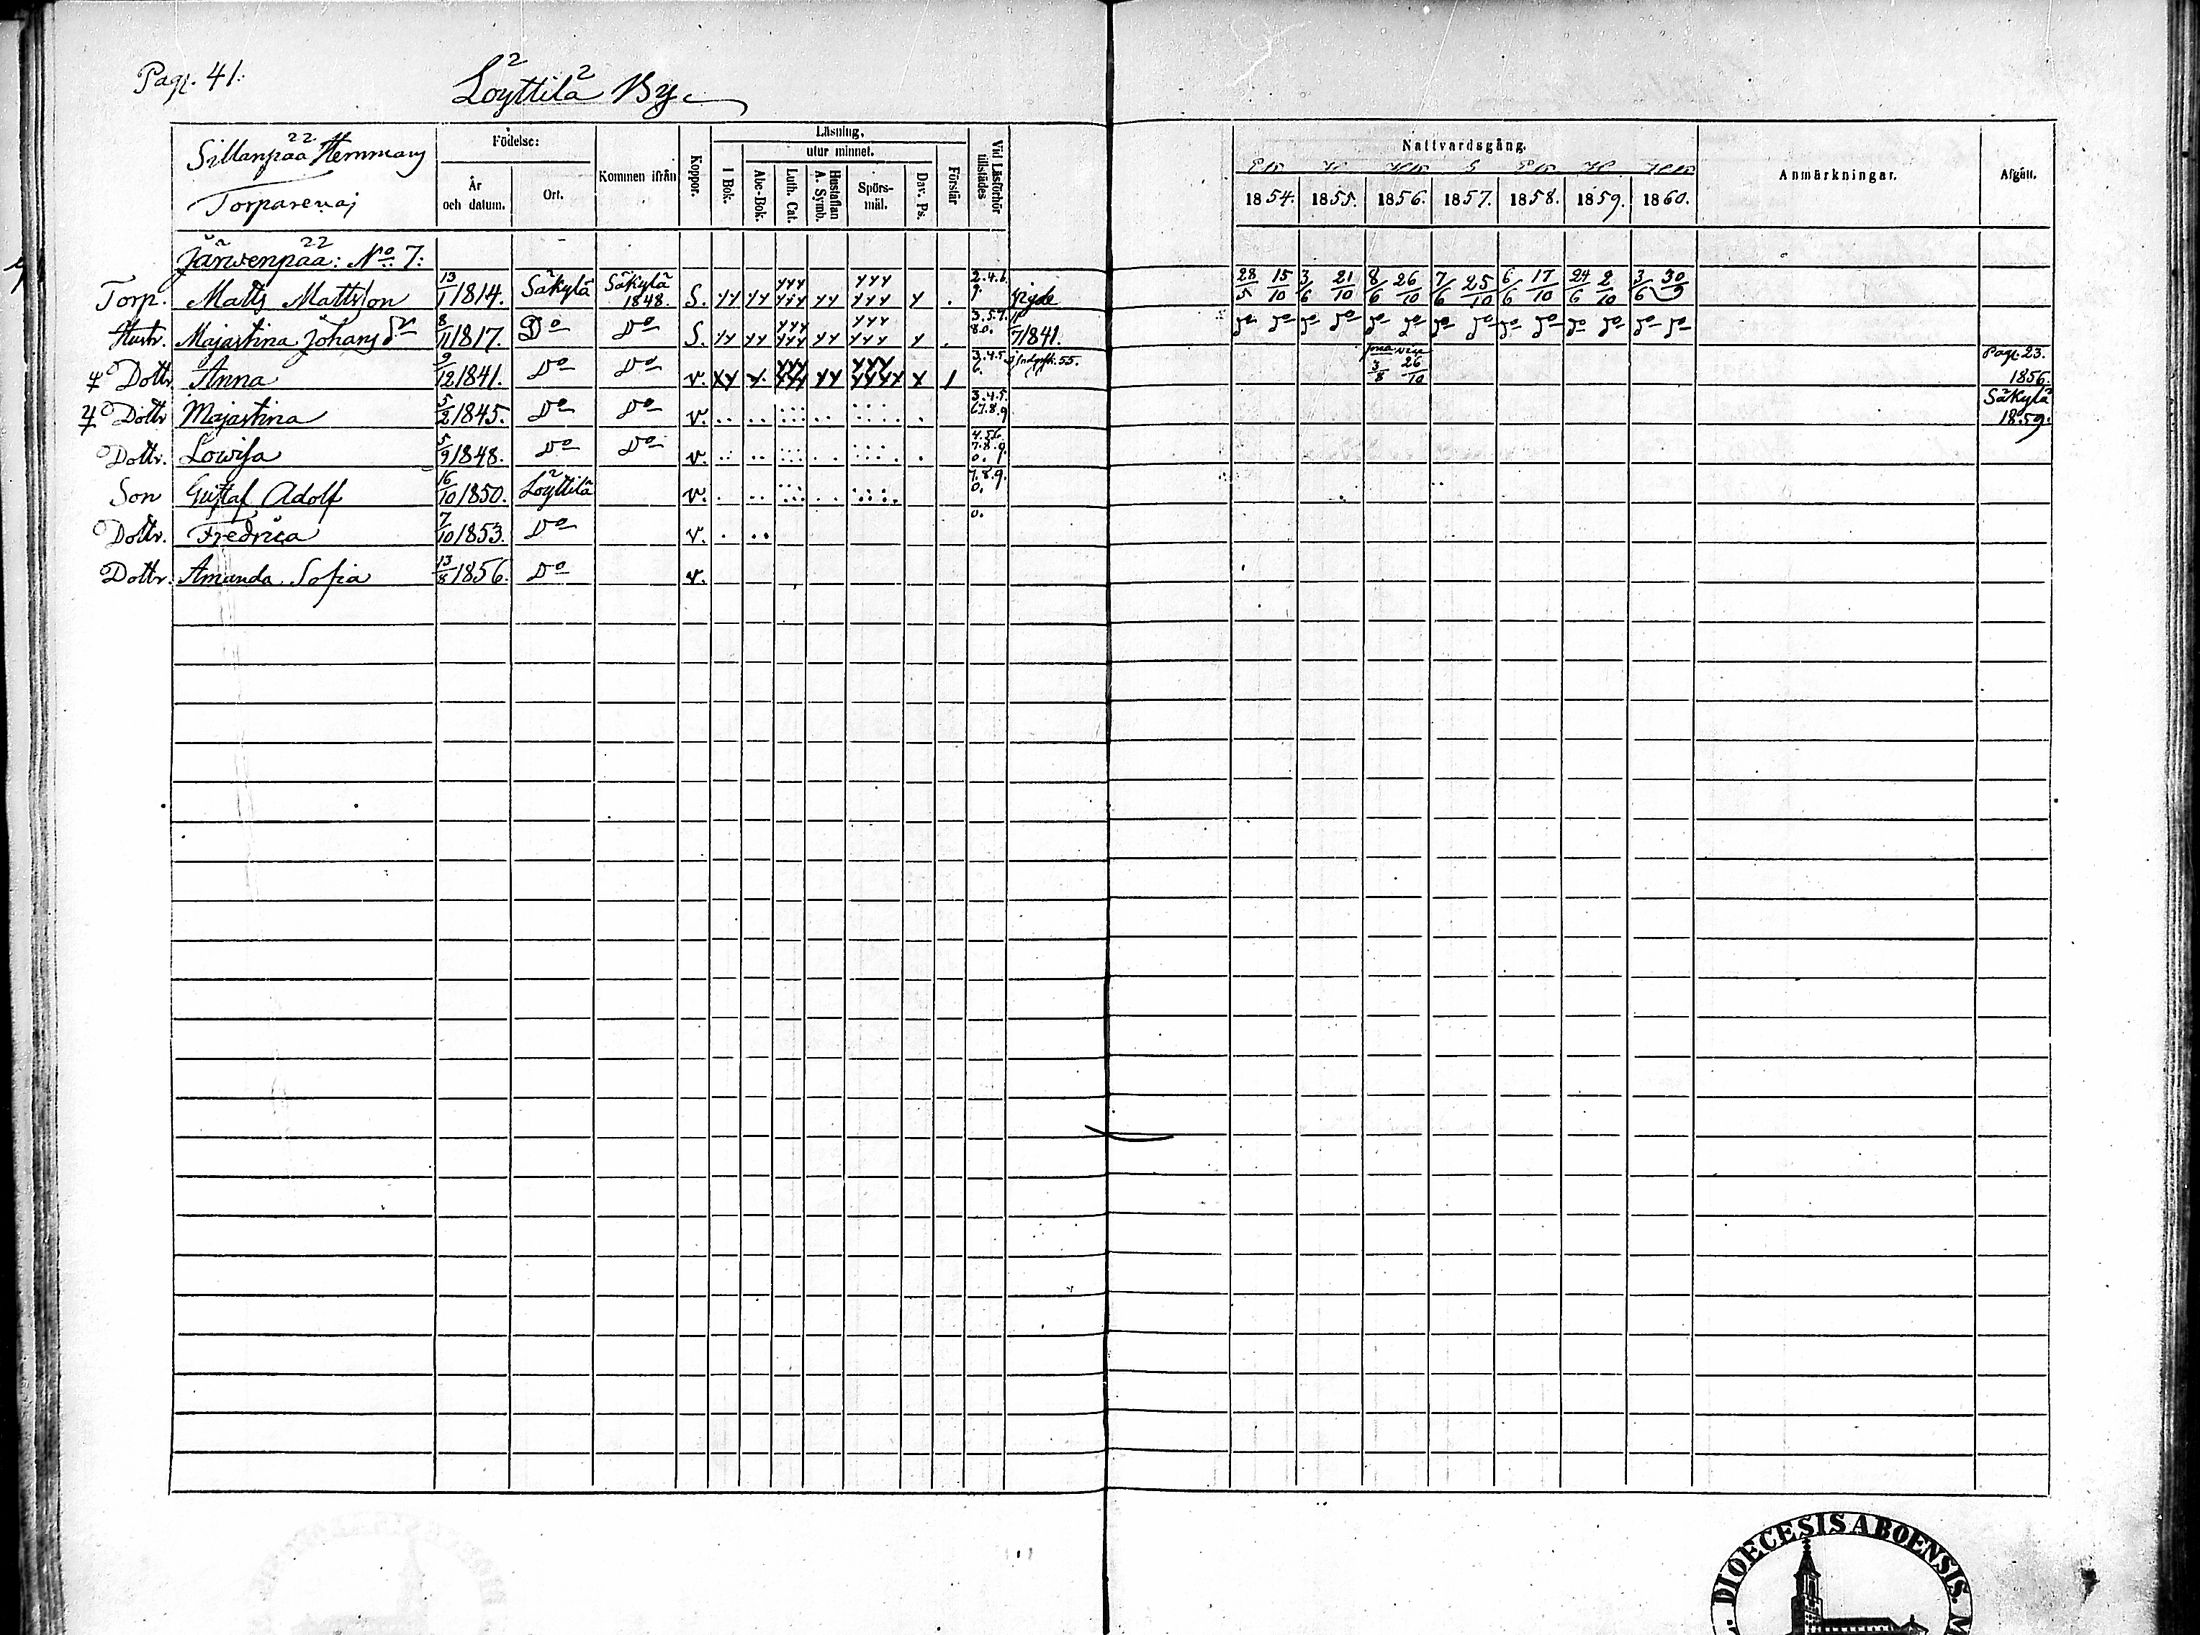 Pag. 41.
Löyttilä By
Sillanpää Hemmans
Torparena;
Födelse:
År och datum.
Ort.
Kommen ifrån
Koppor.
Läsning,
I Bok.
utur minnet.
Abc-Bok.
Luth. Cat.
Hustaflan A. Symb.
Spörs-mål.
Dav. Ps.
Förstår
Vid Läsförhör tillstädes
Nattvardsgång.
1854. 1855. 1856. 1857. 1858. 1859. 1860.
Anmärkningar.
Afgått.
Järwenpää: No 7:
Torp. Matts Mattsson 13/1 1814. Säkylä Säkylä 1848. S. 3.4.6. 9. 28/5 15/10 3/6 21/10 8/6 26/10 7/6 25/10 6/6 17/10 24/6 2/10 3/6 30/9
Hustr. Majastina Johans Dr 8/11 1817. Do Do S. 3.5.7. 8.0. 1841. Do Do Do Do Do Do Do Do Do Do Do Do Do Do
Dottr. Anna 9/12 1841. Do Do v. 3.4.5. 6. 55. 3/8 26/10 Pag. 23. 1856.
Dottr Majastina 5/2 1845. Do Do v. 3.4.5. 6.7.8.9 Säkylä 1859.
Dottr. Lowisa 5/9 1848. Do Do v. 4.5.6. 7.8.9. 0.
Son Gustaf Adolf 16/10 1850. Löyttilä v. 7.8.9. 0.
Dottr. Fredrica 7/10 1853. Do v. 0.
Dottr. Amanda Sofia 13/8 1856. Do v.
DIOECESIS ABOENSIS. M